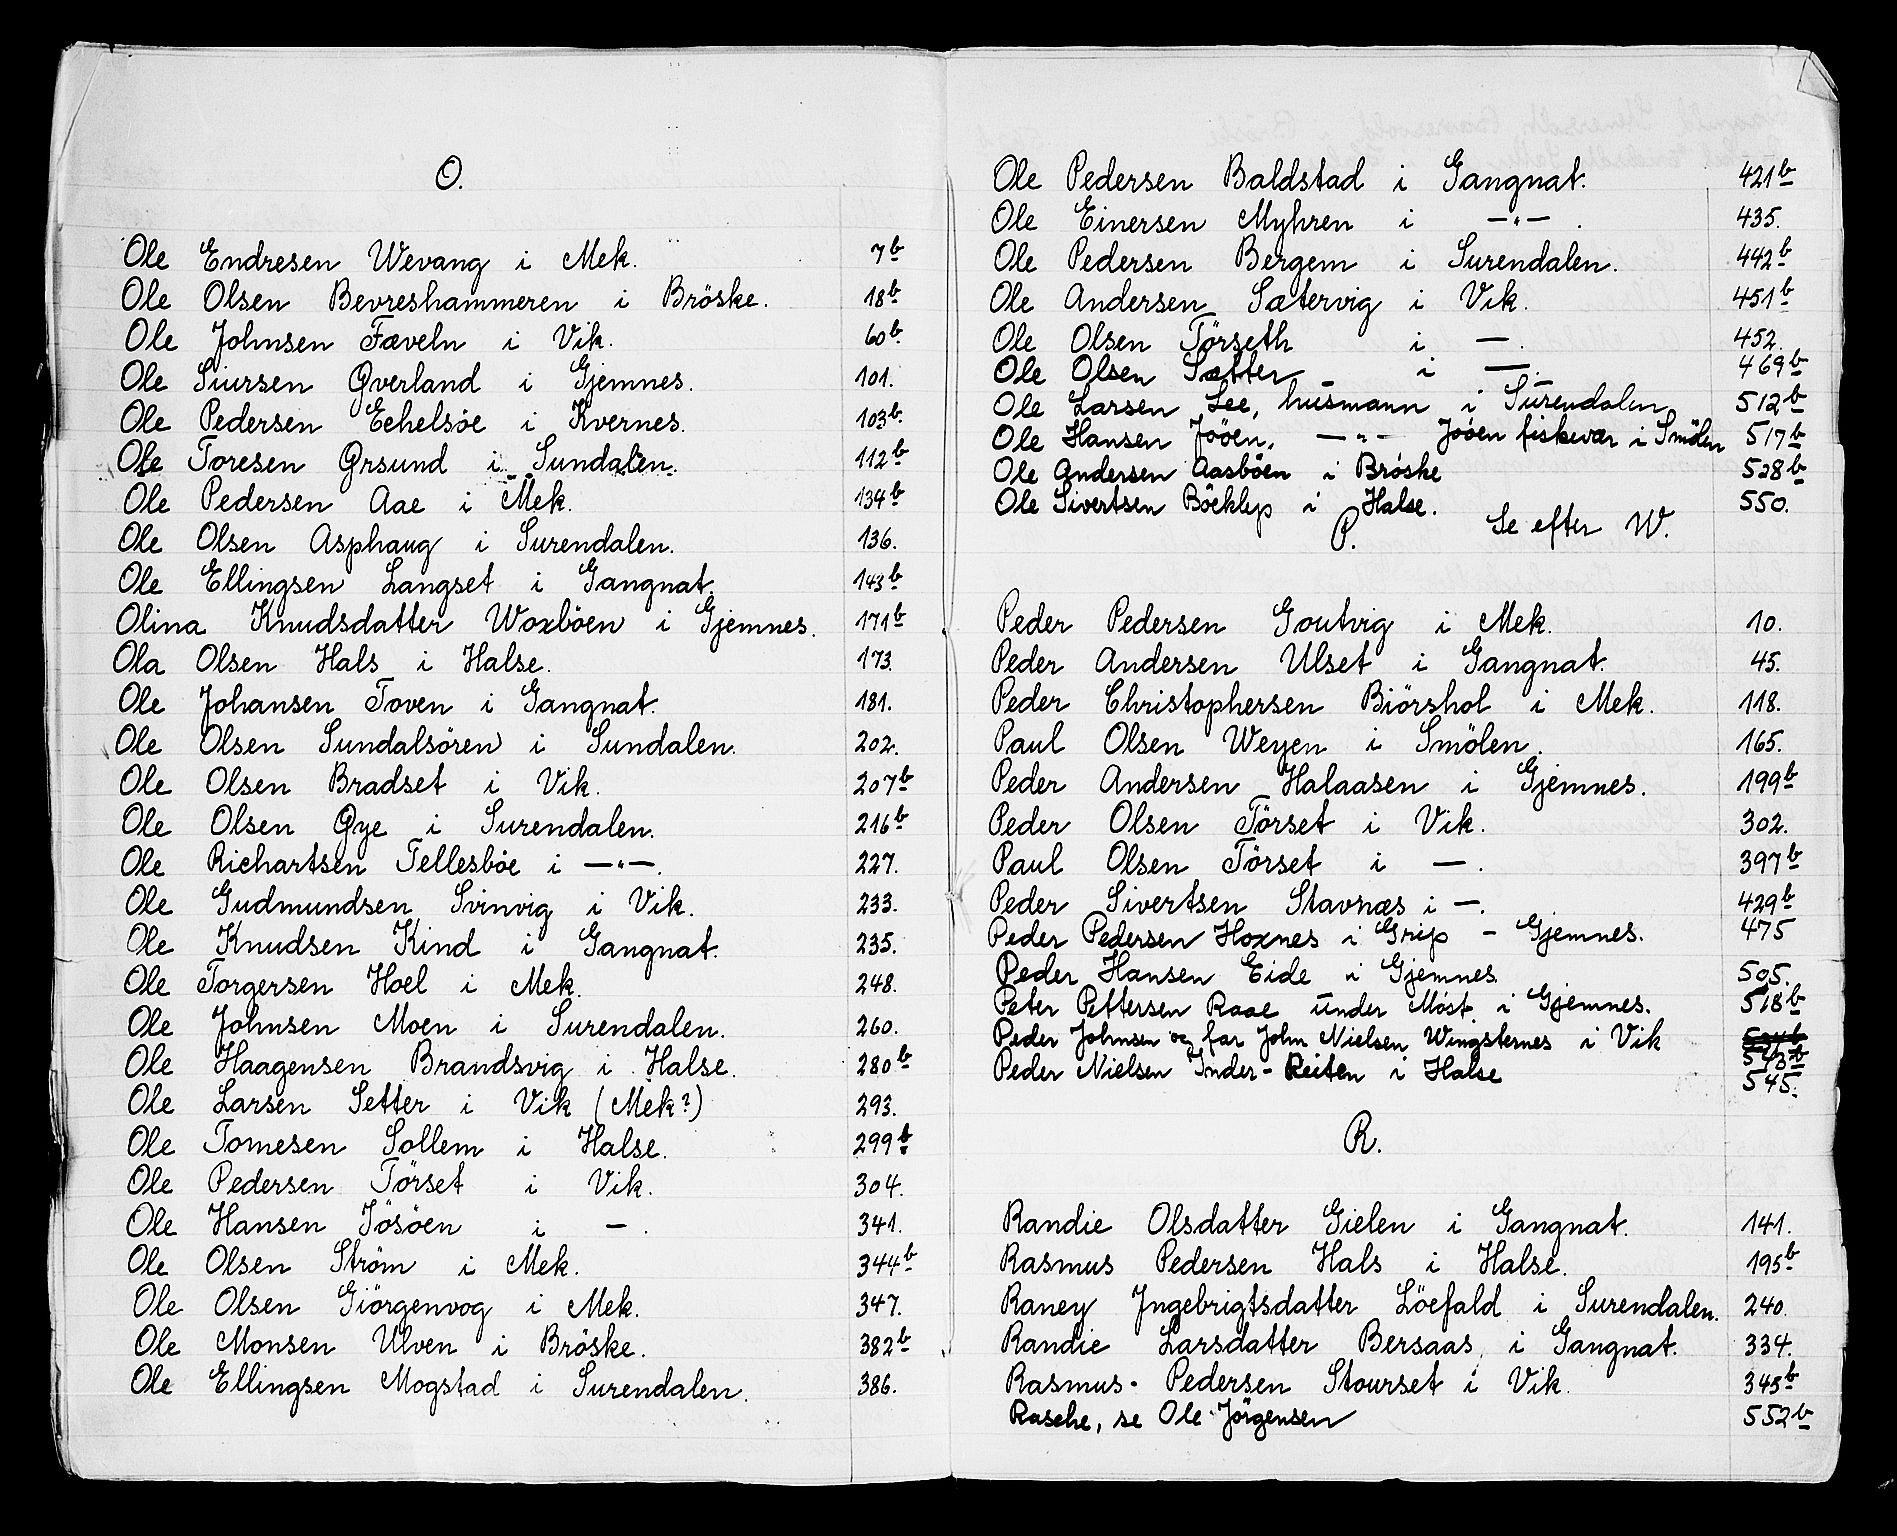 O.
Ole Endresen Wevang i Mek. 7b
Ole Olsen Bevreshammeren i Bröske. 18b
Ole Johnsen Fæveln i Vik. 60b.
Ole Siursen Qverland i Gjemnes. 101.
Ole Pedersen Echelsöe i Kvernes. 103b.
Ole Toresen Qrsund i Sundalen. 112b
Ole Pedersen Aae i Mek. 134b
Ole Olsen Asphaug i Surendalen. 136.
Ole Ellingsen Langset i Gangnat. 143b
Olina Knudsdatter Woxböen i Gjemnes. 171b
Ola Olsen Hals i Halse. 173.
Ole Johansen Toven i Gangnat. 181.
Ole Olsen Sundalsören i Sundalen. 202.
Ole Olsen Bradset i Vik. 207b
Ole Olsen Qye i Surendalen. 216b
Ole Richartsen Tellesböe i —"—. 227.
Ole Gudmundsen Svinvig i Vik. 233.
Ole Knudsen Kind i Gangnat. 235.
Ole Torgersen Hoel i Mek. 248.
Ole Johnsen Moen i Surendalen. 260.
Ole Haagensen Brandsvig i Halse. 280b
Ole Larsen Setter i Vik (Mek?) 293.
Ole Tomesen Sollem i Halse. 299b
Ole Pedersen Törset i Vik. 304.
Ole Hansen Jösöen i —. 341.
Ole Olsen Ström i Mek. 344b
Ole Olsen Giörgenvog i Mek. 347.
Ole Monsen Ulven i Bröske. 382b
Ole Ellingsen Mogstad i Surendalen. 386.
Ole Pedersen Baldstad i Gangnat. 421b
Ole Einersen Myhren i —"—. 435.
Ole Pedersen Bergem i Surendalen. 442b
Ole Andersen Sætervig i Vik. 451b
Ole Olsen Törseth i —. 452.
Ole Olsen Sætter i —. 469b
Ole Larsen Lee, husmann i Surendalen 512b
Ole Hansen Jööen, —"— Jööen fiskevær i Smölen 517b
Ole Andersen Aasböen i Bröske 528b
Ole Sivertsen Böeklep i Halse. 550.
P. Se efter W.
Peder Pedersen Goutvig i Mek. 10.
Peder Andersen Ulset i Gangnat. 45.
Peder Christophersen Biörshol i Mek. 118.
Paul Olsen Weyen i Smölen. 165.
Peder Andersen Halaasen i Gjemnes. 199b
Peder Olsen Törset i Vik. 302.
Paul Olsen Törset i —. 397b
Peder Sivertsen Stavnæs i —. 429b
Peder Pedersen Hoxnes i Grip - Gjemnes. 475
Peder Hansen Eide i Gjemnes. 505.
Peter Pettersen Raae under Möst i Gjemnes. 518b
Peder Johnsen og far John Nielsen Wingsternes i Vik 543b
Peder Nielsen Inder-Reiten i Halse 545.
R.
Randie Olsdatter Gielen i Gangnat. 141.
Rasmus Pedersen Hals i Halse. 195b
Raney Jngebrigtsdatter Löefald i Surendalen. 240.
Randie Larsdatter Bersaas i Gangnat. 334.
Rasmus Pedersen Stourset i Vik. 345b
Rasche, se Ole Jörgensen 552b